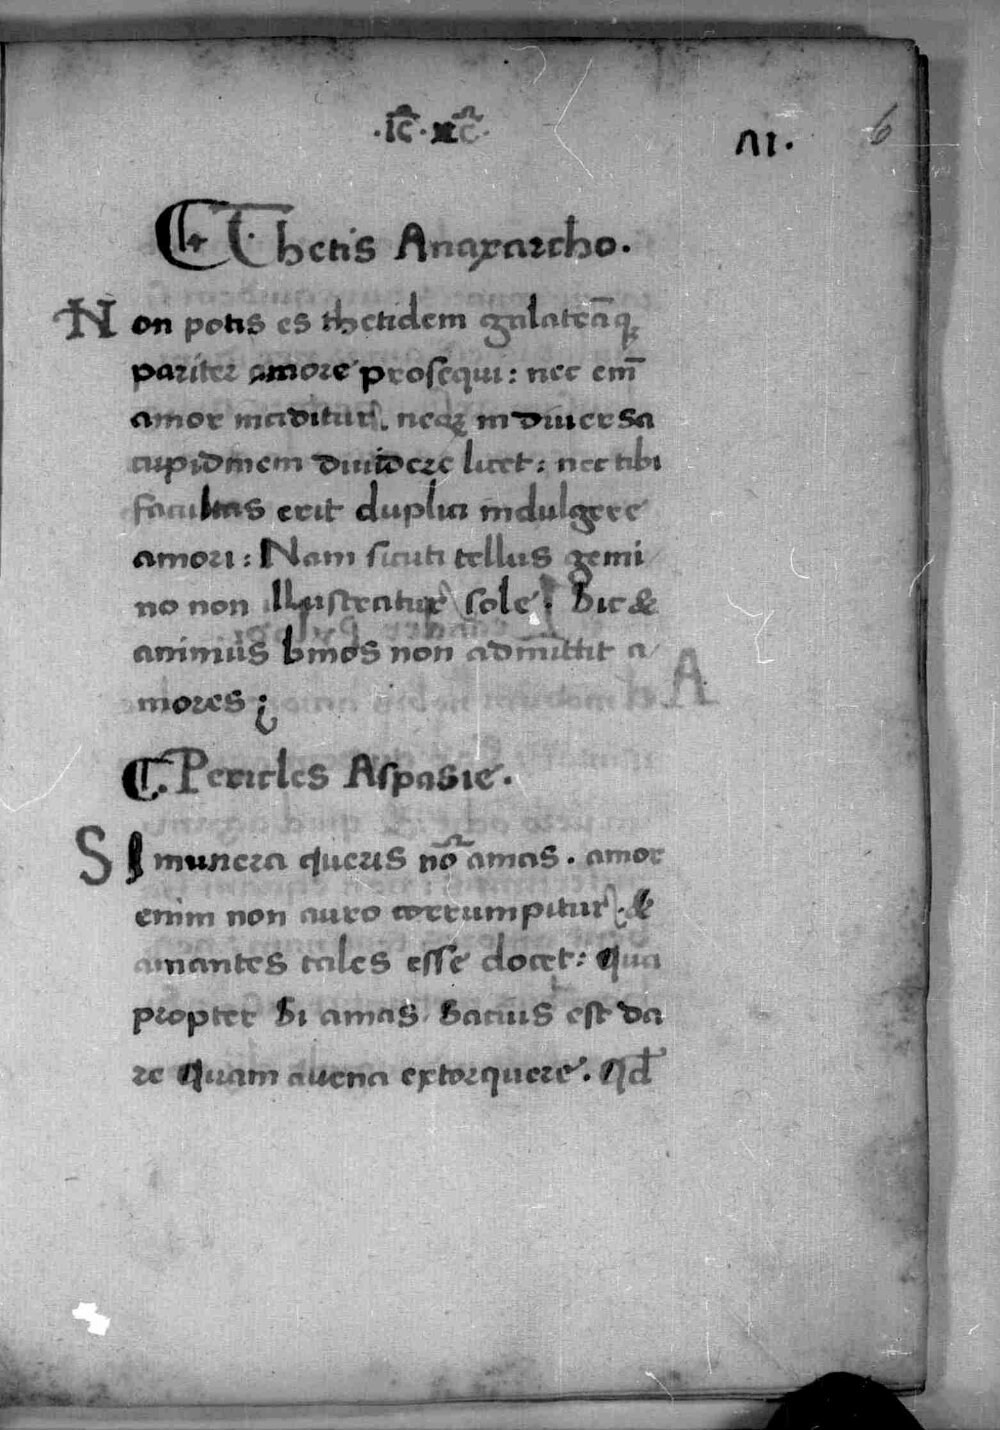 ·IC̄·XC̄·
VI.
6
Thetis Anaxarcho.
Non potis es thetidem galateāqꝫ
pariter amore prosequi: nec em̄
amor inciditur. neqꝫ in diuersa
cupidinem diuidere licet: nec tibi
facultas erit duplici indulgere
amori: Nam sicuti tellus gemi
no non illustratur sole. Sic &
animus binos non admittit a
mores;
A
Pericles Aspasie.
SI munera queris nō amas. amor
enim non auro corrumpitur. &
amantes tales esse docet: Qua
propter Si amas Satius est da
re Quam auena extorquere. Qd